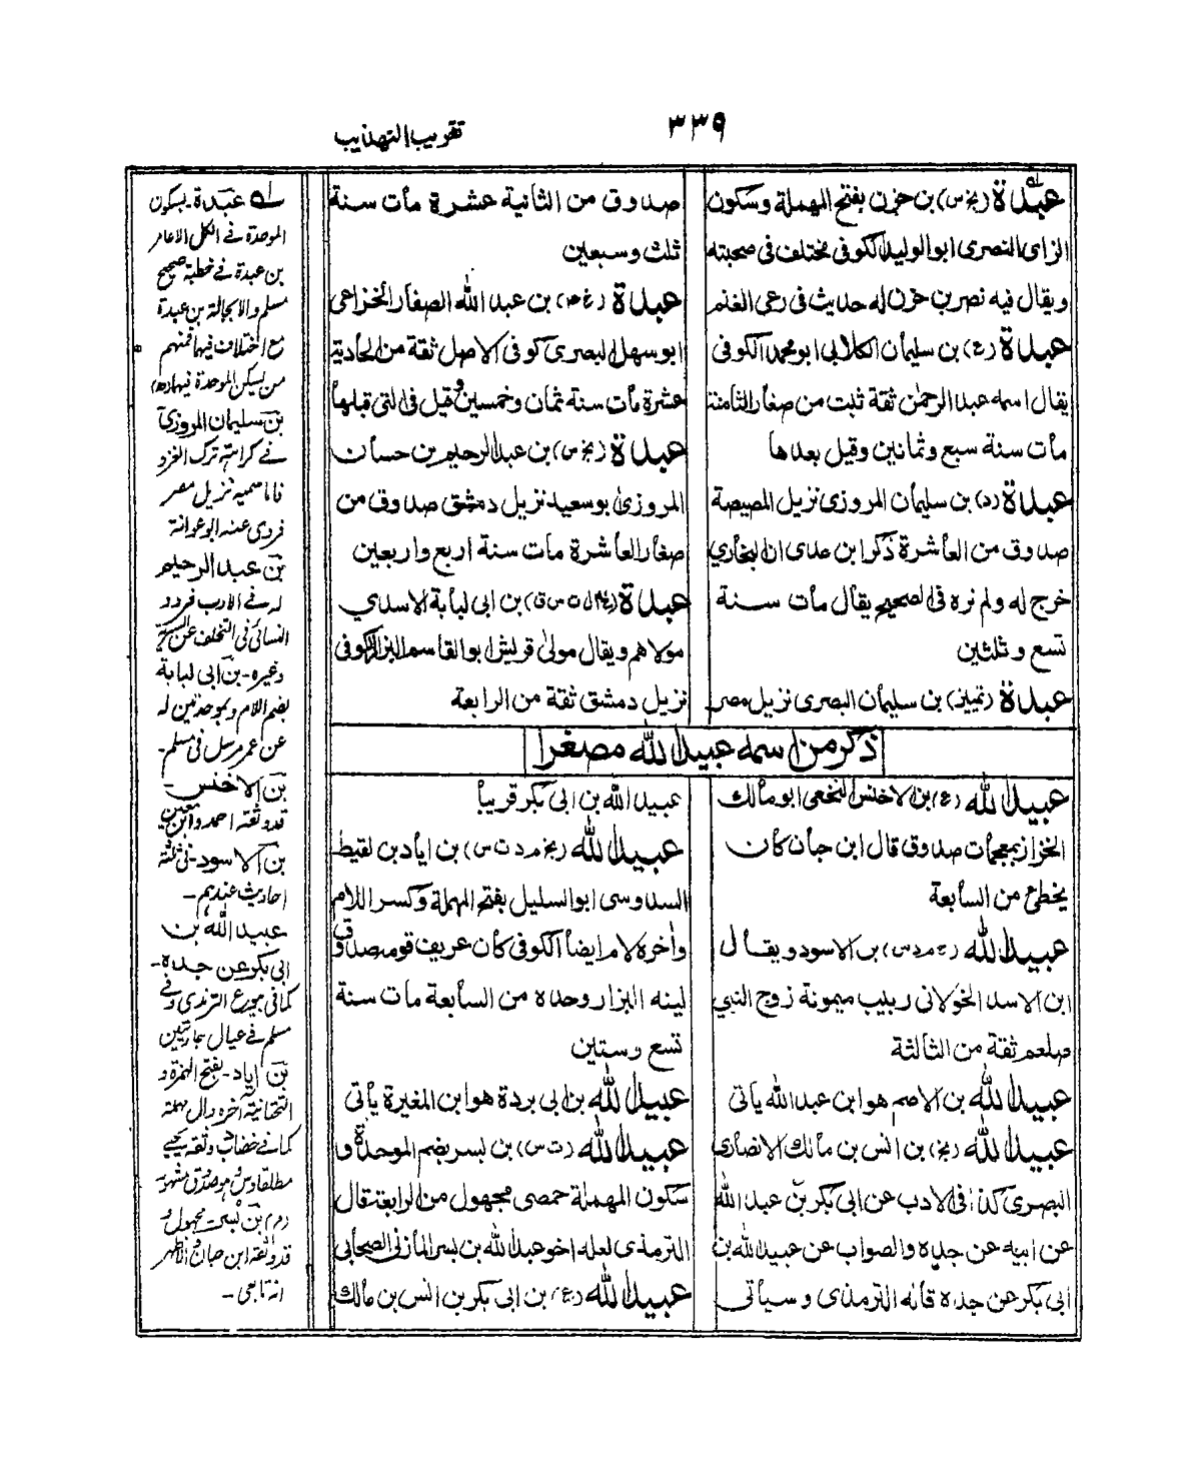 ٣٣٩
تقريب التهذيب
عبدة (بخ س) بن حزن بفتح المهملة وسكون
الزاى النصرى ابو الوليد الكوفى مختلف فى صحبته
ويقال فيه نصر بن حزن له حديث فى رعى الغنم
عبدة (ع) بن سليمان الكلابى ابو محمد الكوفى
يقال اسمه عبد الرحمن ثقة ثبت من صغار الثامنة
مات سنة سبع وثمانين وقيل بعدها
عبدة (د) بن سليمان المروزى نزيل المصيصة
صدوق من العاشرة ذكر ابن عدى ان البخاري
خرج له ولم نره فى الصحيح يقال مات سنة
تسع وثلثين
عبدة (تمييز) بن سليمان البصرى نزيل مصر
صدوق من الثانية عشرة مات سنة
ثلث وسبعين
عبدة (خ عم) بن عبد الله الصفار الخزاعى
ابو سهل البصرى كوفى الاصل ثقة من الحادية
عشرة مات سنة ثمان وخمسين وقيل فى التى قبلها
عبدة (بخ س) بن عبد الرحيم بن حسان
المروزى ابو سعيد نزيل دمشق صدوق من
صغار العاشرة مات سنة اربع واربعين
عبدة بن ابى لبابة الاسدي
مولاهم ويقال مولى قريش ابو القاسم البزاز الكوفى
نزيل دمشق ثقة من الرابعة
ذكر من اسمه عبيد الله مصغرا
عبيد الله (ع) بن الاخنس النخعى ابو مالك
الخزاز بمعجمات صدوق قال ابن حبان كان
يخطئ من السابعة
عبيد الله (خ م د س) بن الاسود ويقال
ابن الاسد الخولانى ربيب ميمونة زوج النبي
صلعم ثقة من الثالثة
عبيد الله بن الاصم هو ابن عبد الله يأتى
عبيد الله (بخ) بن انس بن مالك الانصارى
البصرى كذا فى الادب عن ابى بكر بن عبد الله
عن ابيه عن جده والصواب عن عبيد الله بن
ابى بكر عن جده قاله الترمذى وسيأتى
عبيد الله بن ابى بكر قريبا
عبيد الله (بخ م د ت س) بن اياد بن لقيط
السدوسى ابو السليل بفتح المهملة وكسر اللام
واخره لام ايضا الكوفى كان عريف قومه صدوق
لينه البزار وحده من السابعة مات سنة
تسع وستين
عبيد الله بن ابى بردة هو ابن المغيرة يأتى
عبيد الله (ت س) بن بسر بضم الموحدة و
سكون المهملة حمصى مجهول من الرابعة قال
الترمذى لعله اخو عبد الله بن بسر المازنى الصحابى
عبيد الله (ع) بن ابى بكر بن انس بن مالك
له عبدة - بسكون
الموحدة فے الكل الا عامر
بن عبدة فے خطبة صحيح
مسلم والا بجالة بن عبدة
مع اختلاف فيهما فمنهم
من يسكن الموحدة فيهما
بن سليمان المروزى
فے كراهية ترك الغزو
نزيل مصر
فروى عنه ابو عوانة
بن عبد الرحيم
له فے الادب فرد و
النسائى فى التخلف عن
وغيره - بن ابى لبابة
بضم اللام وبموحدتين له
عن عمر مرسل فى مسلم -
بن الاخنس -
قد وثقه احمد وابن معين
بن الاسود - فى ثلثة
احاديث عندهم -
عبيد الله بن
ابى بكر عن جده -
كما فى بيوع الترمذى وفے
مسلم فے عيال جاريتين
بن اياد - بفتح الهمزة و
التحتانية اخره دال مهملة
كما فے خضاب وثقه يحيى
روم بن بسر مجهول و
قد وثقه ابن حبان والاظهر
انه تابعى -